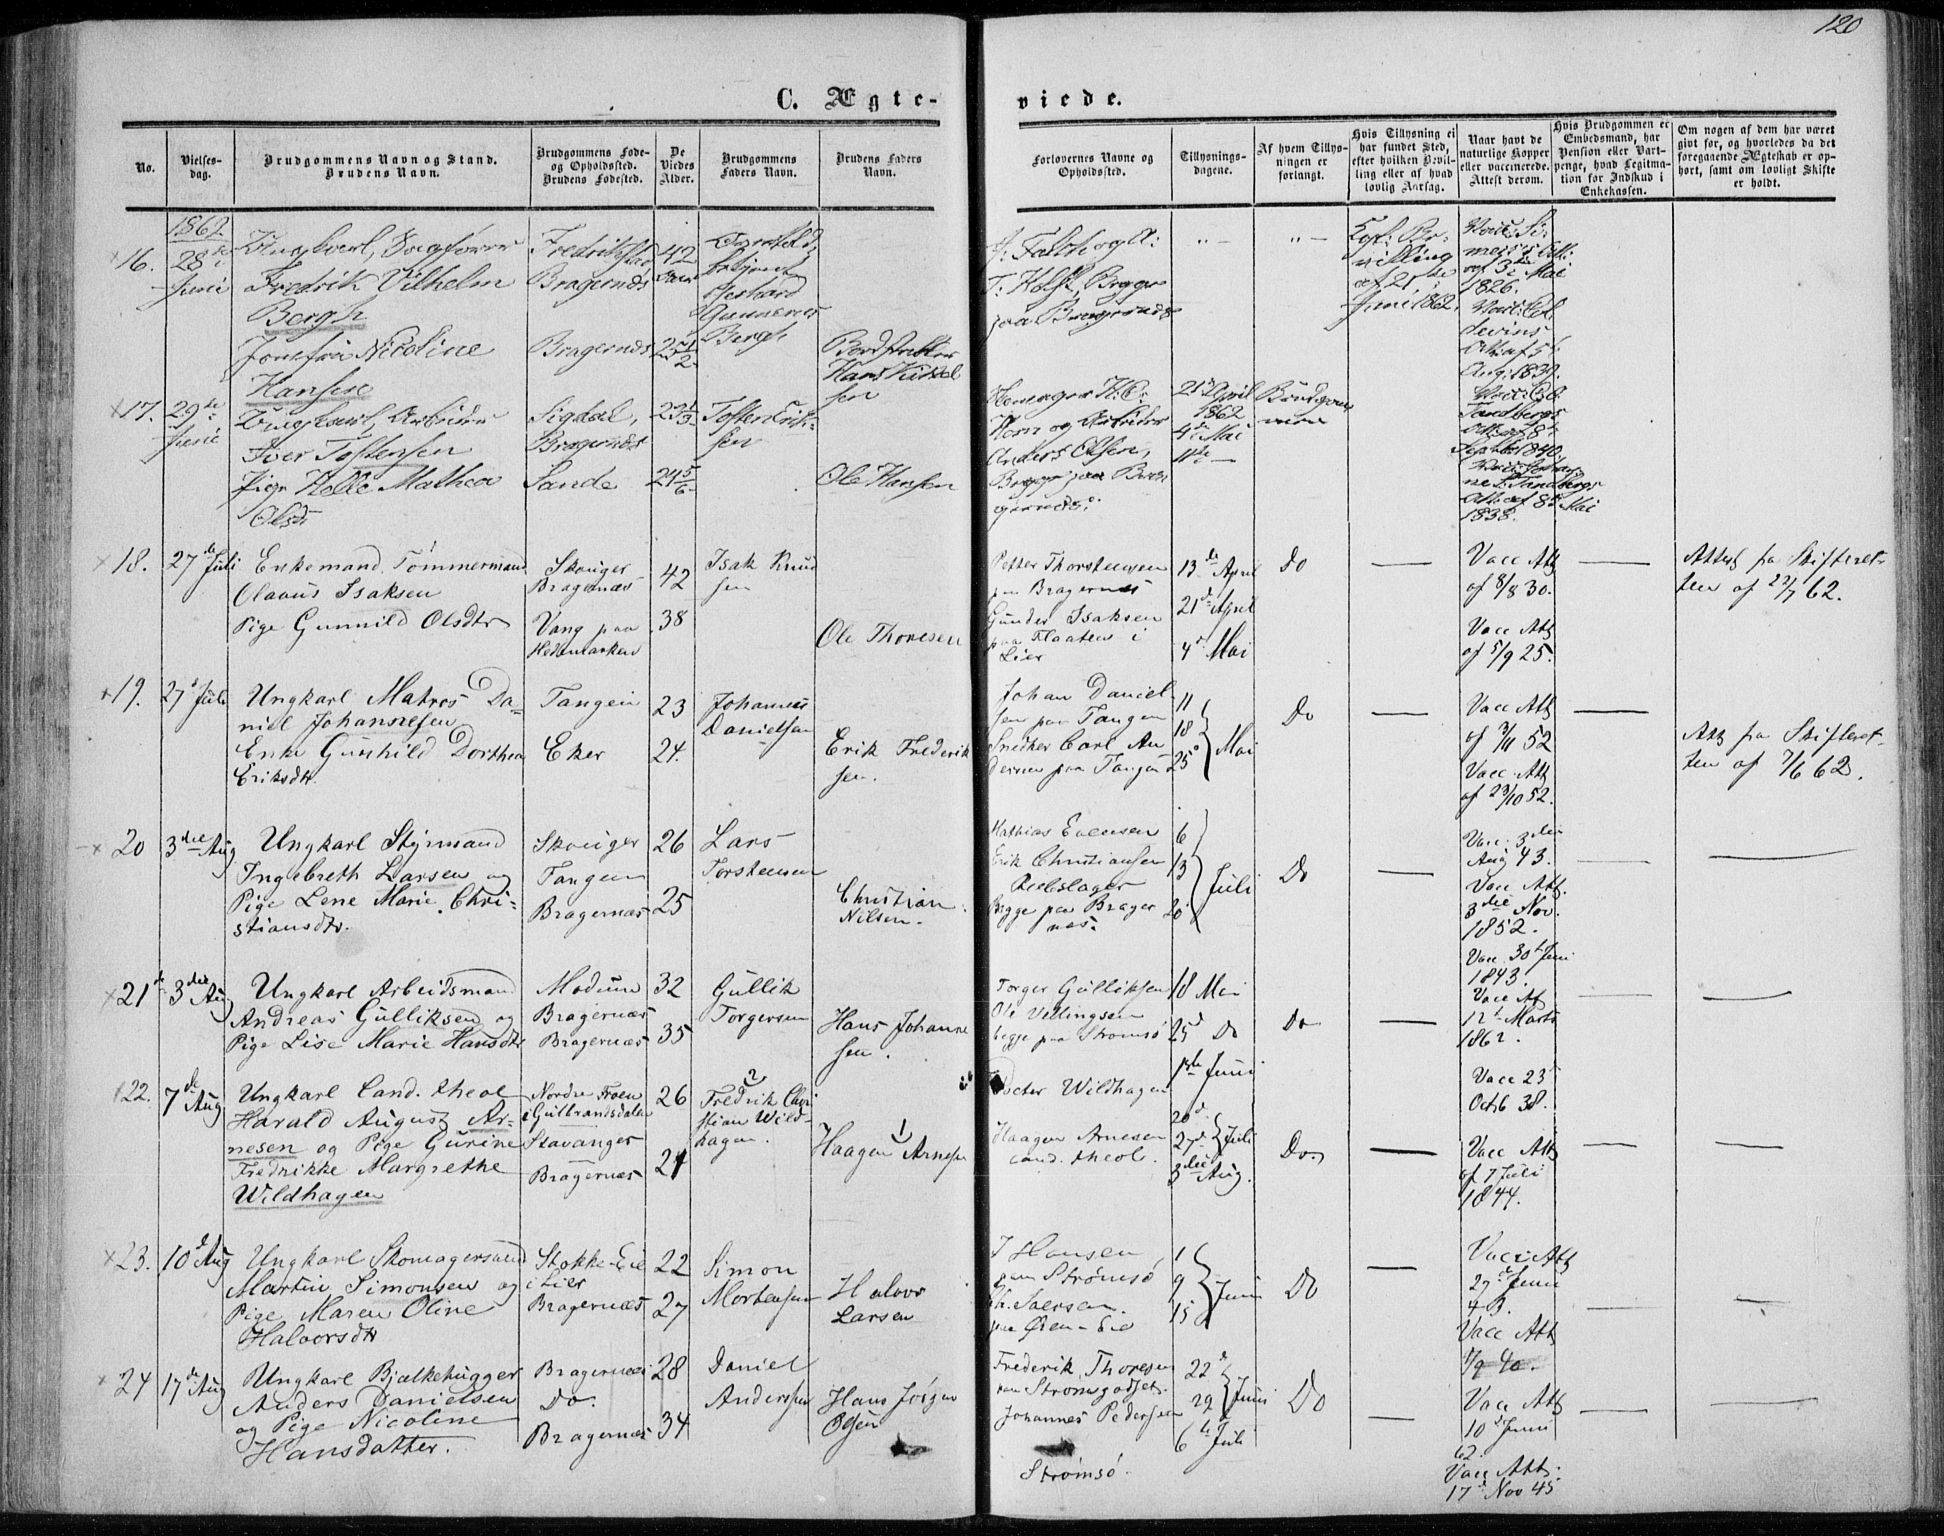 120
C. Ægte-
viede.
No.
Vielses-
dag.
Brudgommens Navn og Stand.
Brudens Navn.
Brudgommens Føde-
og Opholdssted.
Brudens Fødested.
De
Viedes
Alder.
Brudgommens
Faders Navn.
Brudens Faders
Navn.
Forlovernes Navne og
Opholdssted.
Tillysnings-
dagene.
Af hvem Tillys-
ningen er
forlangt.
Hvis Tillysning ei
har fundet Sted,
efter hvilken Bevil-
ling eller af hvad
lovlig Aarsag.
Naar havt de
naturlige Kopper
eller vaccinerede.
Attest derom.
Hvis Brudgommen er
Embedsmand, har
Pension eller Vart-
penge, hvad Legitima-
tion for Indskud i
Enkekassen.
Om nogen af dem har været
gift før, og hvorledes da det
foregaaende Ægteskab er op-
hørt, samt om lovligt Skifte
er holdt.
1862
16.
28de
Juni
Ungkarl, Sagfører
Fredrik Vilhelm
Bergh
Jomfru Nicoline
Hansen
Fredrikstad
Bragernæs
Bragernæs
42
25 1/2
Gerhard
Gunnerus
Bergh
Hans Kittel
sen
T. Holst, Begge
paa Bragernæs
"—
"—
Kgl: Be-
villing
af 21de
Juni 1862.
af 3de Mai
1826.
Att: af 5te
Aug: 1839.
17.
29de
Juni
Ungkarl, Arbeider
Iver Tostensen
Pige Helle Mathea
Olsdr
Sigdal,
Bragernæs
Sande
23 1/3
24 5/6
Tosten Erik-
sen
Ole Hansen
Horn og Arbeider
Anders Olsen,
Begge paa Bra-
gernæs.
21de April
1862
4de Mai
11te —
Brudgom-
men
Tandbergs
Att: af 8de
Septbr 1840.
Tandbergs
Att: af 8de Mai
1838.
18.
27de Juli
Enkemand Tømmermand
Olavus Isaksen
Pige Gunnild Olsdtr
Skouger
Bragernæs
Vang paa
Hedemarken
42
38
Isak Knud
sen
Ole Thoresen
Petter Thorstensen
paa Bragernæs
Gunder Isaksen
paa Flaaten i
Lier
13de April
21de April
4de Mai
Do
—
Vacc Att
af 8/8 30.
Vacc Att
af 5/9 25.
—
Attest fra Skifteret-
ten af 22/7 62.
19.
27de Juli
Ungkarl Matros Da-
niel Johannesen
Enke Gunhild Dorthea
Eriksdtr.
Tangen
Eker
23
24.
Johannes
Danielsen
Erik Frederik
sen.
Johan Daniel-
sen paa Tangen
Snedker Carl An-
dersen paa Tangen
11
18
25
Mai
Do
—
Vacc Att
af 3/11 52
Vacc Att
af 23/10 52.
—
Att fra Skifteret-
ten af 7/6 62.
20
3die Aug
Ungkarl Styrmand
Ingebreth Larsen og
Pige Lene Marie Chri-
stiansdtr.
Skouger
Tangen
Bragernæs
26
25
Lars
Torstensen
Christian
Nilsen.
Mathias Evensen
Erik Christiansen
Reebslager
Begge paa Brager
næs.
6
13
20
Juli
Do
—
Vacc: 3die
Aug 43.
Vacc Att.
3die Nov.
1852.
—
—
21
3die Aug
Ungkarl Arbeidsmand
Andreas Gulliksen og
Pige Lise Marie Hansdtr
Modum
Bragernæs
Bragernæs
32
35
Gullik
Torgersen
Hans Johanne
sen.
Torger Gulliksen
Ole Vettingsen
begge paa Strømsø
18 Mai
25de Do
1ste Juni
Do
—
Vacc 30te Juni
1843.
Vacc Af
12te Marts
1862.
—
—
22.
7de Aug
Ungkarl Cand. theol
Harald August Ar-
nesen og Pige Gurine
Fredrikke Margrethe
Wildhagen
Nordre Froen
i Gulbrandsdalen
Stavanger
Bragernæs
26
21
2
Fredrik Chri
stian Wild-
hagen.
1
Haagen Arnesen
Docter Wildhagen
Haagen Arnesen
cand. theol.
20de
27de
Juli
3die Aug.
Do.
—
Vacc 23
Octb 38.
Vacc Att
af 7 Juli
1844.
—
—
23.
10de Aug
Ungkarl Skomagersvend
Martin Simonsen og
Pige Maren Oline
Halvorsdtr
Stokke-Eie
i Lier
Bragernæs
22
27
Simon
Mortensen
Halvor
Larsen
J Hansen
paa Strømsø
paa Øren-Eie
1
9
15
Juni
Do
—
Vacc Att
27de Juni
43.
Vacc Att
1/9 40.
—
—
24
17de Aug
Ungkarl Bjælkehugger
Anders Danielsen
og Pige Nicoline
Hansdatter.
Bragernæs
Do.
Bragernæs
28
34
Daniel
Andersen
Hans Jørgen
Olsen
Frederik Thoresen
paa Strømsgodset.
Johannes Pedersen
Strømsø.
22de
29
Juni
6te Juli
Do
—
Vacc Att
10de Juni
62.
Vacc Att:
17de Nov 45
—
—